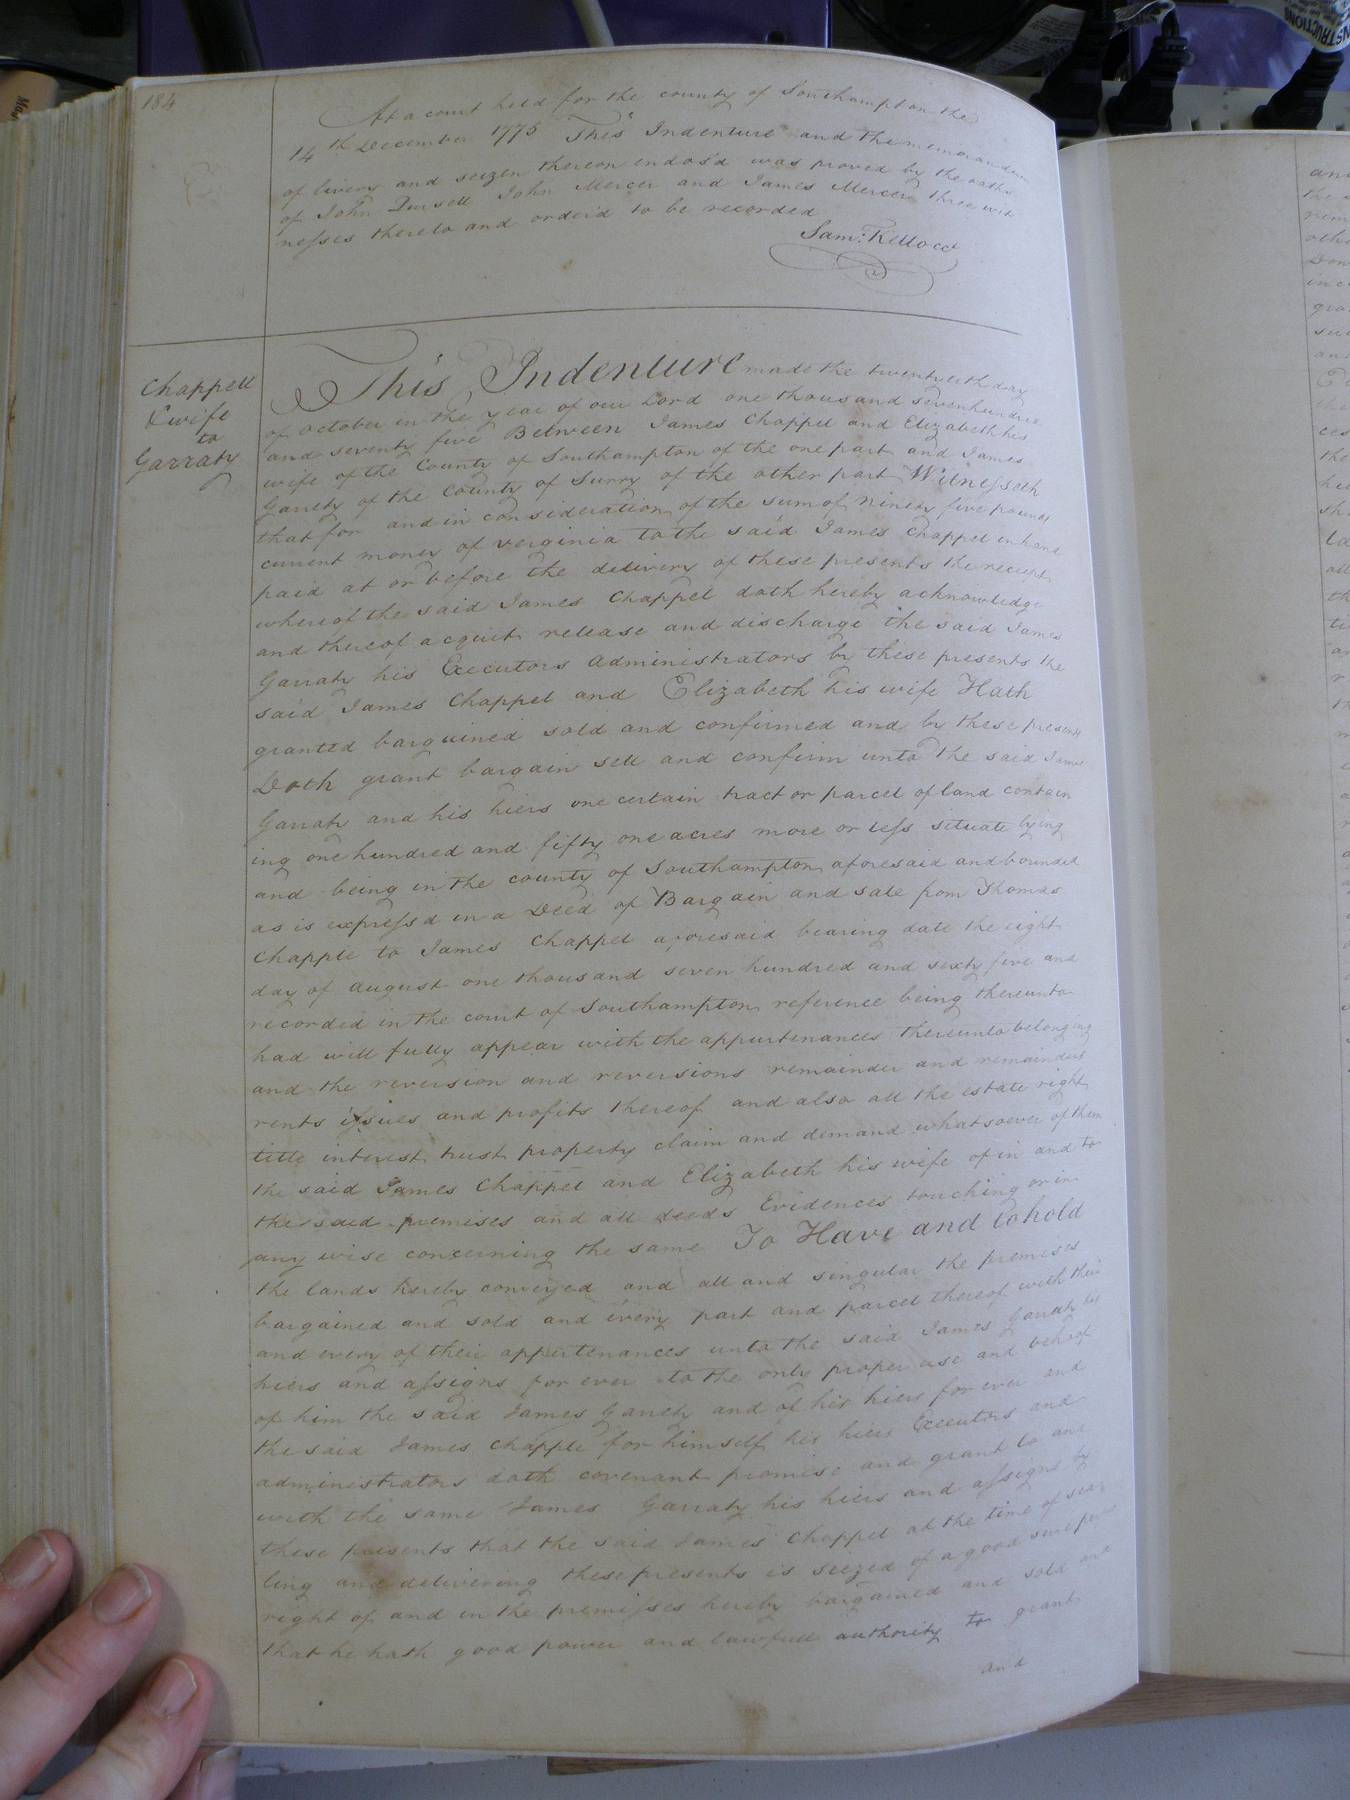 184
At a court held for the county of Southampton the
14th December 1775 This Indenture and the memorandum
of livery and seizen thereon endos'd was proved by the oaths
of John John Mercer and James Mercer three wit
nesses thereto and order'd to be recorded
Sam: Kello cc
Chappell
& wife
to
Garraty
This Indenture made the twenty day
of October in the year of our Lord one thousand sevenhundred
and seventy five Between James Chappel and Elizabeth his
wife of the County of Southampton of the one part and James
Garrety of the County of Surry of the other part Witnesseth
that for and in consideration of the sum of ninety five pounds
current money of verginia to the said James Chappel in hand
paid at or before the delivery of these presents the receipt
whereof the said James Chappel doth hereby acknowledge
and thereof acquit release and discharge the said James
Garraty his Executors administrators by these presents the
said James Chappel and Elizabeth his wife Hath
granted barguined sold and confirmed and by these presents
Doth grant bargain sell and confirm unto the said James
Garraty and his hiers one certain tract or parcel of land contain
ing one hundred and fifty one acres more or less situate lying
and being in the county of Southampton aforesaid and bounded
as is express'd in a Deed of Bargain and sale from Thomas
Chapple to James Chappel aforesaid bearing date the eight
day of august one thousand seven hundred and sixty five and
recorded in the court of Southampton reference being thereunto
had will fully appear with the appurtenances thereunto belonging
and the reversion and reversions remainder and remainders
rents issues and profits thereof and also all the estate right
title interest trust property claim and demand whatsoever of them
the said James Chappel and Elizabeth his wife of in and to
the said premises and all deeds Evidences touching or in
any wise concerning the same To Have and to hold
the lands hereby conveyed and all and singular the premises
bargained and sold and every part and parcel thereof with their
and every of their appurtenances unto the said James Garraty his
hiers and assigns for ever to the only proper use and behoof
of him the said James Garrety and of his hiers for ever and
the said James Chapple for himself his hiers Executors and
administrators doth covenant promise and grant to and
with the same James Garraty his hiers and assigns by
these presents that the said James Chappel at the time of sea
ling and delivering these presents is seized of a good sure perfect
right of and in the premisses hereby bargained and sold and
that he hath good power and lawfull authority to grant
and